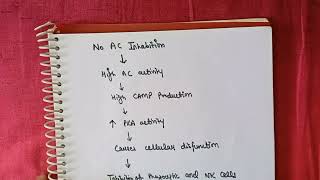 No AC Inhabition
↓
High AC activity
↓
High CAMP Production
↓
↑ PKA activity
↓
Causes cellular disfunction
↓
Inhibits of Phagocytic and NK Cells